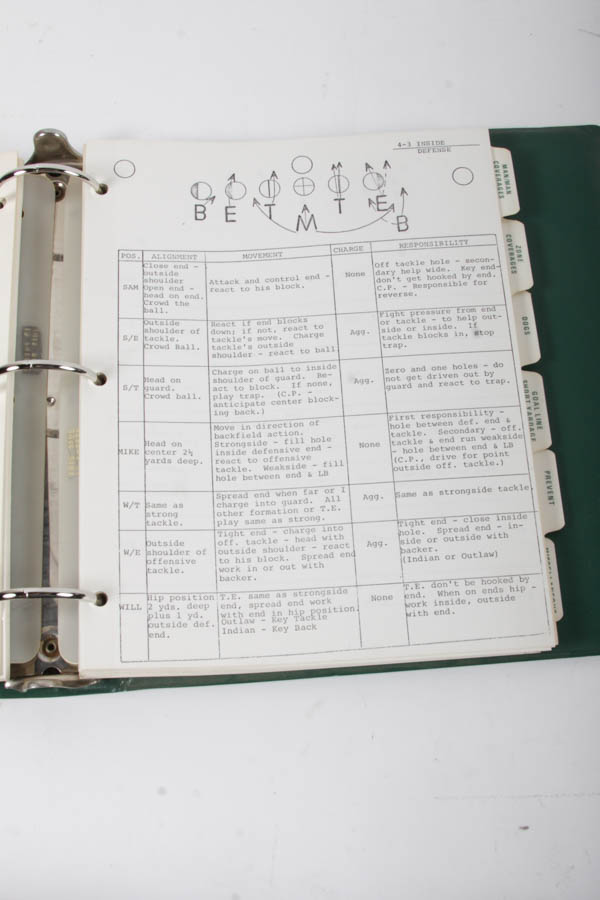 4-3 INSIDE
DEFENSE
B E T M T E B
POS. ALIGNMENT MOVEMENT CHARGE RESPONSIBILITY
SAM
Close end -
outside
shoulder
Open end -
head on end.
Crowd the
ball.
Attack and control end -
react to his block.
None
Off tackle hole - secon-
dary help wide. Key end-
don't get hooked by end.
C.P. - Responsible for
reverse.
S/E
Outside
shoulder of
tackle.
Crowd Ball.
React if end blocks
down; if not, react to
tackle's move. Charge
tackle's outside
shoulder - react to ball
Agg.
Fight pressure from end
or tackle - to help out-
side or inside. If
tackle blocks in, stop
trap.
S/T
Head on
guard.
Crowd ball.
Charge on ball to inside
shoulder of guard. Re-
act to block. If none,
play trap. (C.P. -
anticipate center block-
ing back.)
Agg.
Zero and one holes - do
not get driven out by
guard and react to trap.
MIKE
Head on
center 2½
yards deep.
Move in direction of
backfield action.
Strongside - fill hole
inside defensive end -
react to offensive
tackle. Weakside - fill
hole between end & LB
None
First responsibility -
hole between def. end &
tackle. Secondary - off.
tackle & end run weakside
- hole between end & LB
(C.P., drive for point
outside off. tackle.)
W/T
Same as
strong
tackle.
Spread end when far or I
charge into guard. All
other formation or T.E.
play same as strong.
Agg.
Same as strongside tackle
W/E
Outside
shoulder of
offensive
tackle.
Tight end - charge into
off. tackle - head with
outside shoulder - react
to his block. Spread end
work in or out with
backer.
Agg.
Tight end - close inside
hole. Spread end - in-
side or outside with
backer.
(Indian or Outlaw)
WILL
Hip position
2 yds. deep
plus 1 yd.
outside def.
end.
T.E. same as strongside
end, spread end work
with end in hip position.
Outlaw - Key Tackle
Indian - Key Back
None
T.E. don't be hooked by
end. When on ends hip -
work inside, outside
with end.
MAN/MAN
COVERAGES
ZONE
COVERAGES
DOGS
GOAL LINE
SHORT YARDAGE
PREVENT